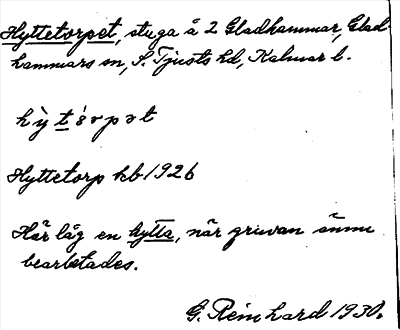 Hyttetorpet, stuga å 2 Gladhammar, Glad
hammars sn, S. Tjusts hd, Kalmar l.
hỳtórpət
Hyttetorp kb 1926
Här låg en hytta, när gruvan ännu
bearbetades.
G. Reinhard 1930.